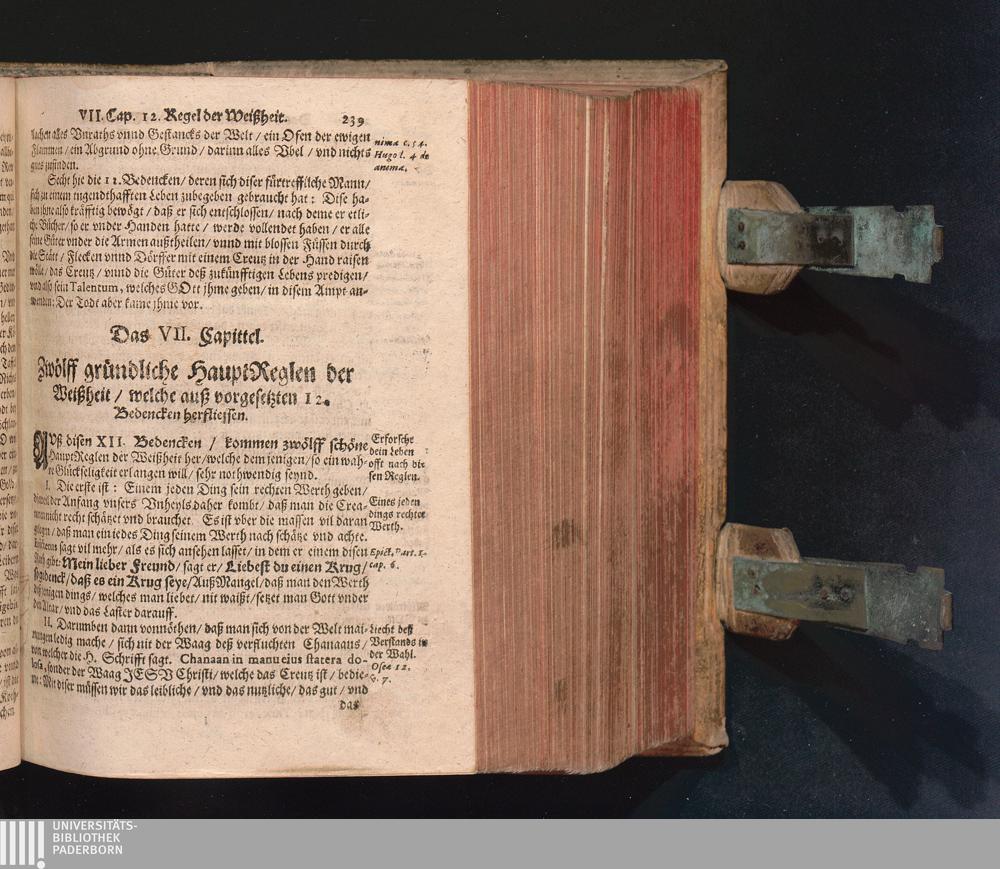 VII. Cap. 12. Regel der Weißheit. 239
alles Vnraths vnnd Gestancks der Welt / ein Ofen der ewigen
Flammen / ein Abgrund ohne Grund / darinn alles Vbel / vnd nichts
guts zufinden.
nima c. 54.
Hugo l. 4 de
anima.
Secht hie die 12. Bedencken / deren sich diser fürtreffliche Mann /
sich zu einem tugendthafften Leben zubegeben gebraucht hat: Dise ha-
ben jhne also kräfftig bewögt / daß er sich entschlossen / nach deme er etli-
che Bücher / so er vnder Handen hatte / werde vollendet haben / er alle
seine Güter vnder die Armen außtheilen / vnnd mit blossen Füssen durch
die Stätt / Flecken vnnd Dörffer mit einem Creutz in der Hand raisen
wölle / das Creutz / vnnd die Güter deß zukünfftigen Lebens predigen /
vnd also sein Talentum, welches GOtt jhme geben / in disem Ampt an-
wenden: Der Todt aber kame jhme vor.
Das VII. Capittel.
Zwölff gründliche HauptReglen der
Weißheit / welche auß vorgesetzten 12.
Bedencken herfliessen.
AVß disen XII. Bedencken / kommen zwölff schöne
HauptReglen der Weißheit her / welche dem jenigen / so ein wah-
re Glückseligkeit erlangen will / sehr nothwendig seynd.
Erforsche
dein Leben
offt nach di-
sen Reglen.
I. Die erste ist: Einem jeden Ding sein rechten Werth geben /
dieweil der Anfang vnsers Vnheyls daher kombt / daß man die Crea-
turen nicht recht schätzet vnd brauchet. Es ist vber die massen vil daran
gelegen / daß man ein iedes Ding seinem Werth nach schätze vnd achte.
Epictetus sagt vil mehr / als es sich ansehen lasset / in dem er einem disen
Rath gibt: Mein lieber Freund / sagt er / Liebest du einen Krug /
so gedenck / daß es ein Krug seye / Auß Mangel / daß man den Werth
deß jenigen dings / welches man liebet / nit waißt / setzet man Gott vnder
den Altar / vnd das Laster darauff.
Eines jeden
dings rechter
Werth.
Epict. Part. 1.
cap. 6.
II. Darumben dann vonnöthen / daß man sich von der Welt mai-
nungen ledig mache / sich nit der Waag deß verfluchten Chanaans /
von welcher die H. Schrifft sagt. Chanaan in manu eius statera do-
losa, sonder der Waag JESV Christi / welche das Creutz ist / bedie-
ne: Mit diser müssen wir das leibliche / vnd das nutzliche / das gut / vnd
Liecht deß
Verstands in
der Wahl.
Oseæ 12.
v. 7.
das
UNIVERSITÄTS-
BIBLIOTHEK
PADERBORN